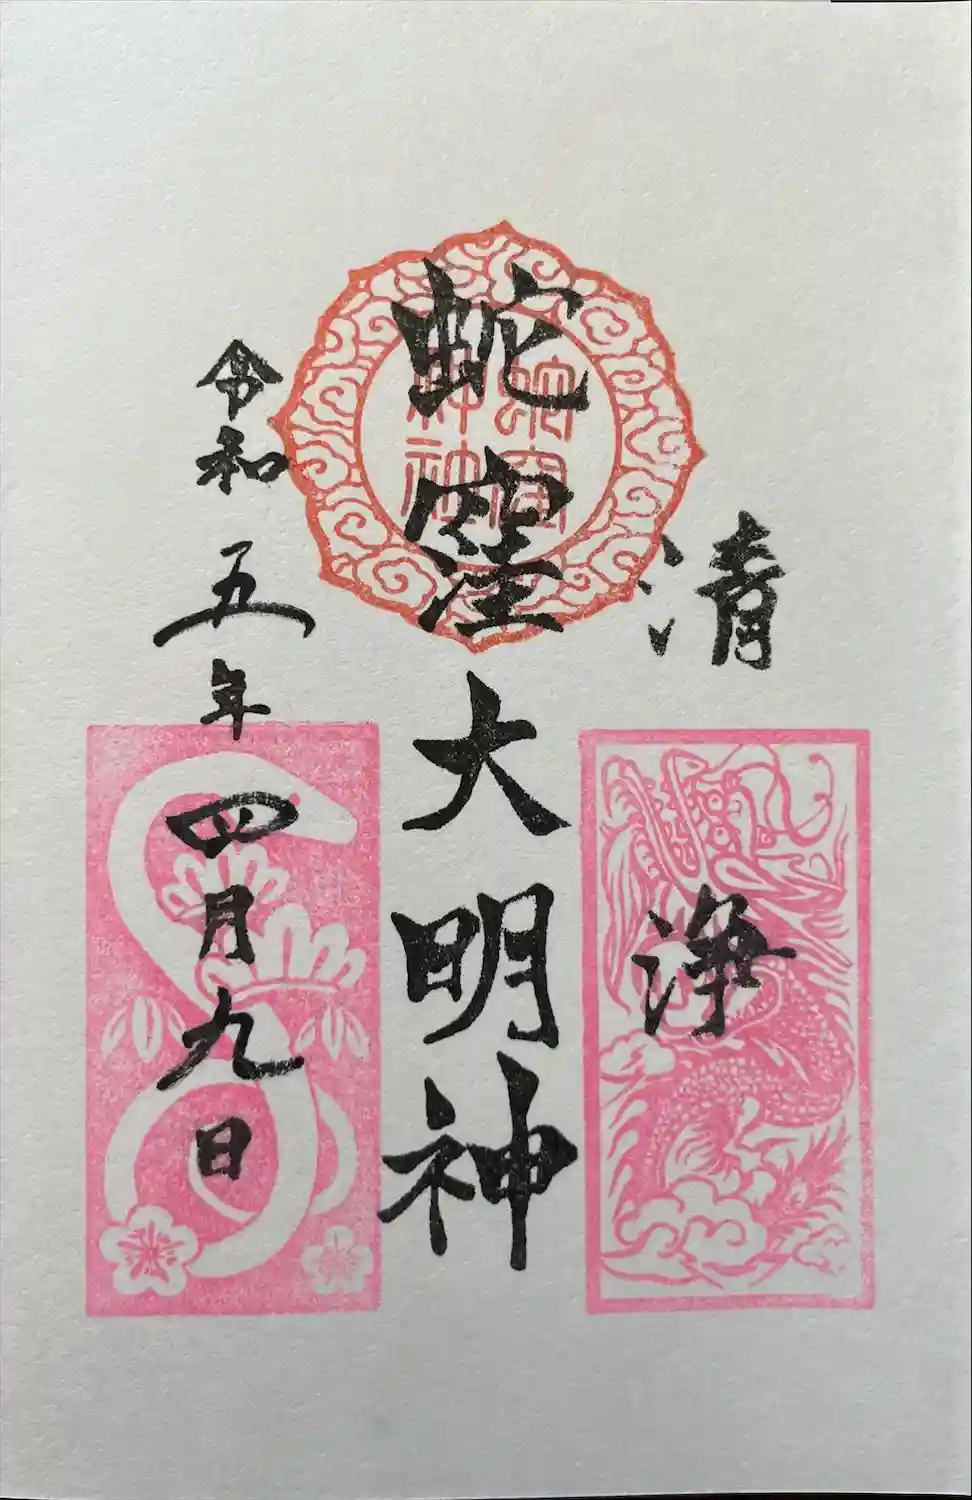 清浄
蛇窪大明神
令和五年四月九日
蛇窪神社